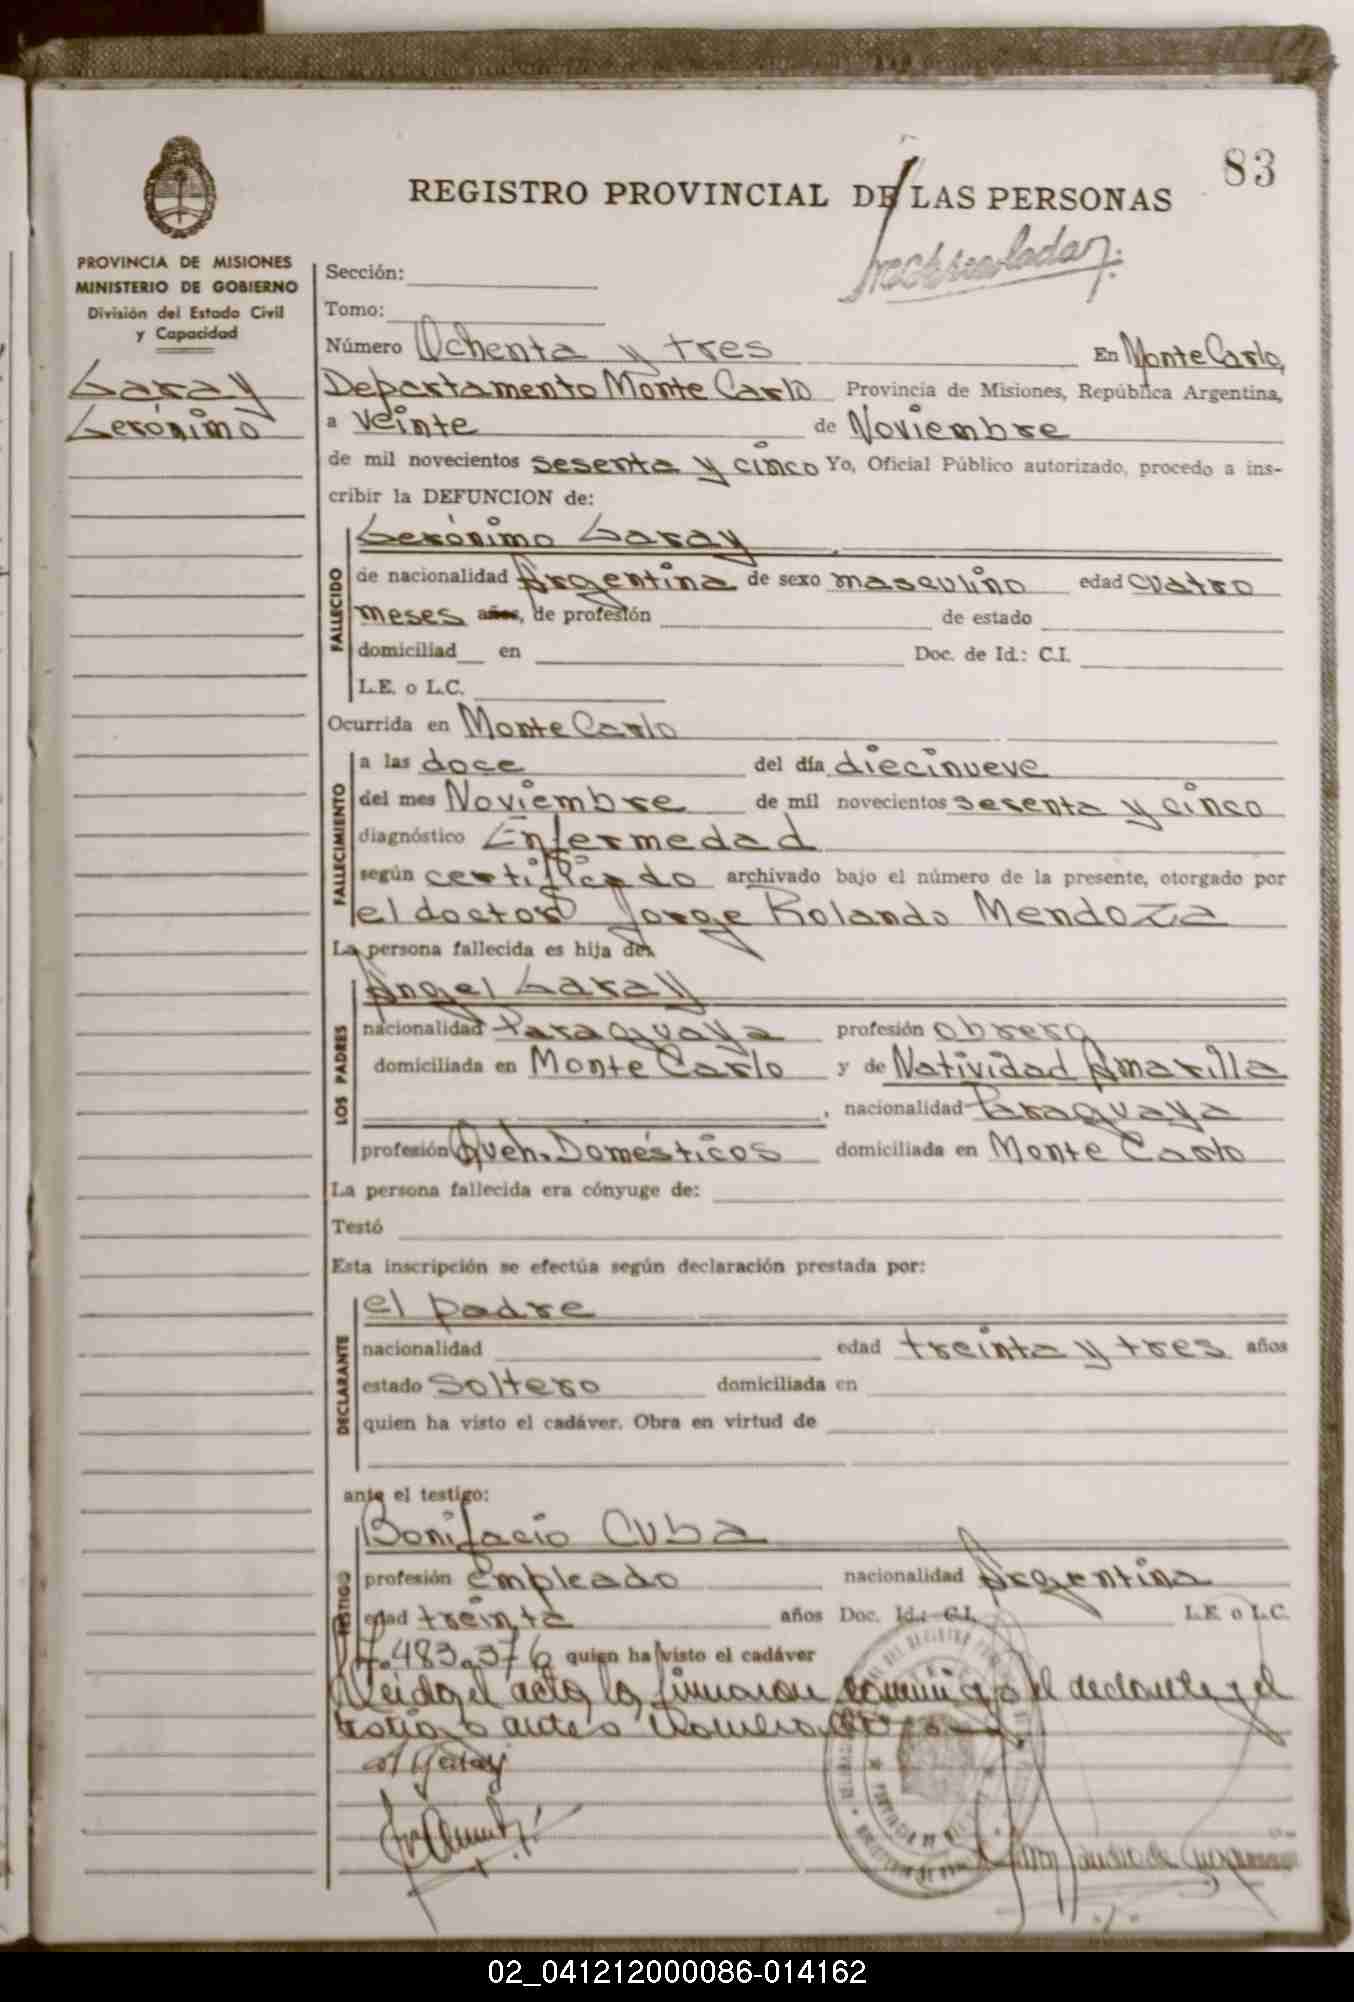 83
REGISTRO PROVINCIAL DE LAS PERSONAS
PROVINCIA DE MISIONES
MINISTERIO DE GOBIERNO
División del Estado Civil
y Capacidad
Garay
Gerónimo
Sección:
Tomo:
Número Ochenta y tres En Monte Carlo,
Departamento Monte Carlo Provincia de Misiones, República Argentina,
a veinte de Noviembre
de mil novecientos sesenta y cinco Yo, Oficial Público autorizado, procedo a ins-
cribir la DEFUNCION de:
FALLECIDO
Gerónimo Garay
de nacionalidad Argentina de sexo masculino edad cuatro
meses años, de profesión de estado
domiciliad en Doc. de Id.: C.I.
L.E. o L.C.
Ocurrida en Monte Carlo
FALLECIMIENTO
a las doce del día diecinueve
del mes Noviembre de mil novecientos sesenta y cinco
diagnóstico Enfermedad
según certificado archivado bajo el número de la presente, otorgado por
el doctor Jorge Rolando Mendoza
La persona fallecida es hija de:
LOS PADRES
Angel Garay
nacionalidad Paraguaya profesión obrero
domiciliada en Monte Carlo y de Natividad Amarilla
, nacionalidad Paraguaya
profesión Queh. Domésticos domiciliada en Monte Carlo
La persona fallecida era cónyuge de:
Testó
Esta inscripción se efectúa según declaración prestada por:
DECLARANTE
el padre
nacionalidad edad treinta y tres años
estado soltero domiciliada en
quien ha visto el cadáver. Obra en virtud de
ante el testigo:
TESTIGO
Bonifacio Cuba
profesión empleado nacionalidad Argentina
edad treinta años Doc. Id.: C.I. L.E. o L.C.
7.483.376 quien ha visto el cadáver
Leida el acta la firmaron conmigo el declarante y el
testigo antes
A Garay
PROVINCIA DE
02_041212000086-014162